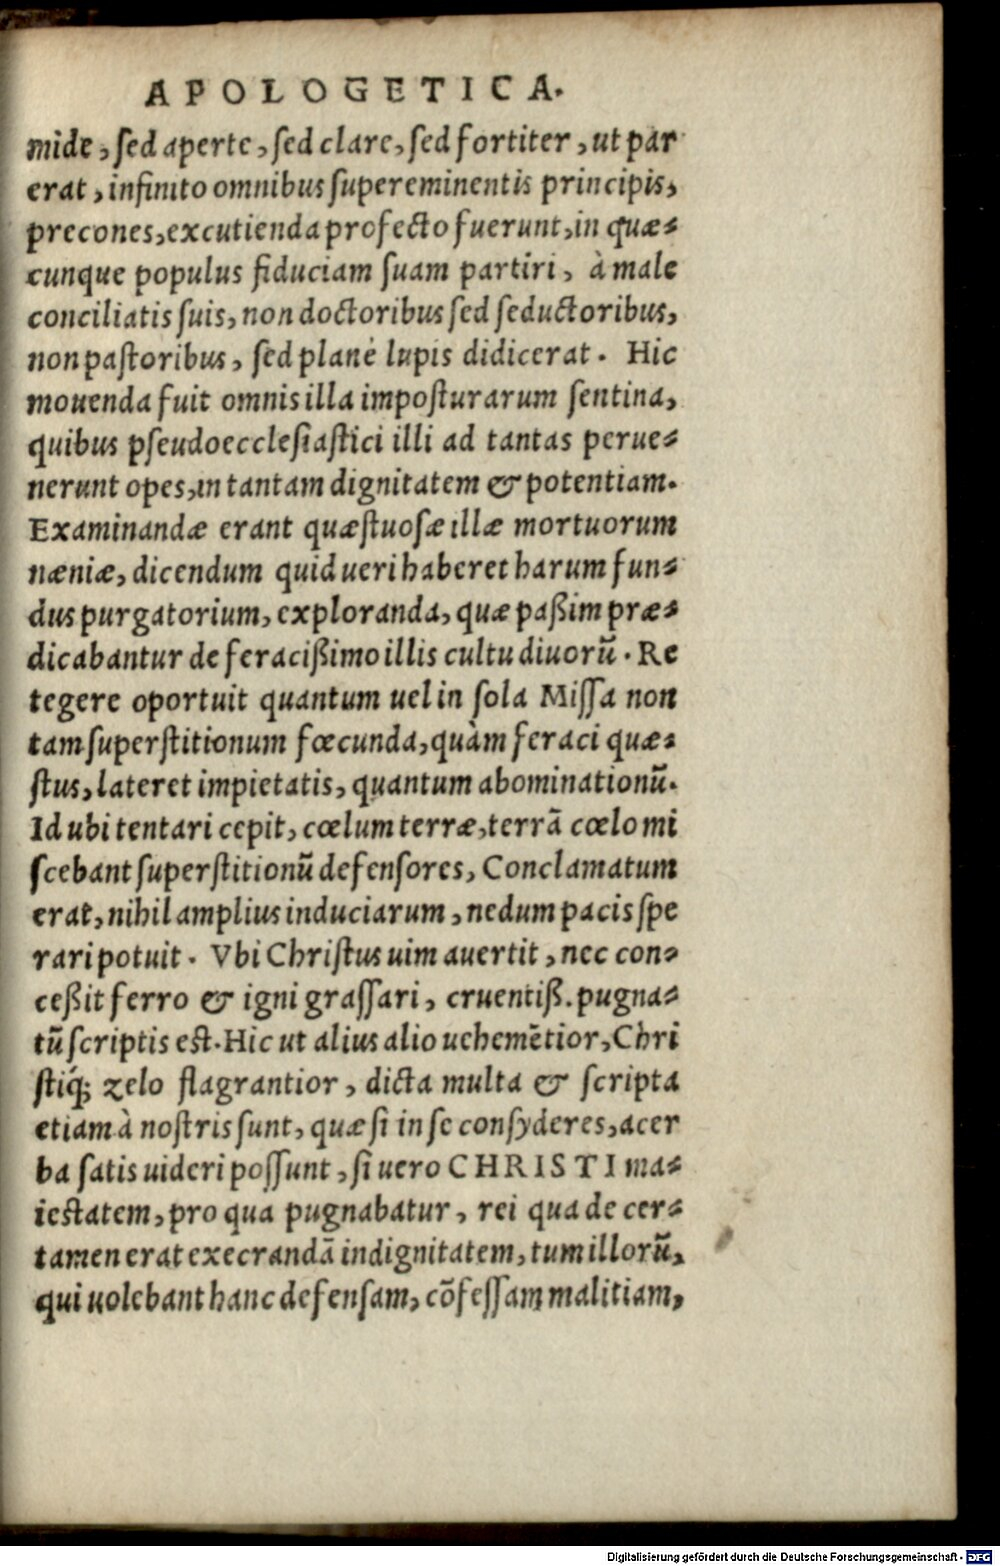 APOLOGETICA.
mide, sed aperte, sed clare, sed fortiter, ut par
erat, infinito omnibus supereminentis principis,
precones, excutienda profecto fuerunt, in quæ-
cunque populus fiduciam suam partiri, à male
conciliatis suis, non doctoribus sed seductoribus,
non pastoribus, sed planè lupis didicerat. Hic
mouenda fuit omnis illa imposturarum sentina,
quibus pseudoecclesiastici illi ad tantas perue-
nerunt opes, in tantam dignitatem & potentiam.
Examinandæ erant quæstuosæ illæ mortuorum
næniæ, dicendum quid ueri haberet harum fun-
dus purgatorium, exploranda, quæ paßim præ-
dicabantur de feracißimo illis cultu diuorũ. Re
tegere oportuit quantum uel in sola Missa non
tam superstitionum fœcunda, quàm feraci quæ-
stus, lateret impietatis, quantum abominationũ.
Id ubi tentari cepit, cœlum terræ, terrã cœlo mi
scebant superstitionũ defensores, Conclamatum
erat, nihil amplius induciarum, nedum pacis spe
rari potuit. Vbi Christus uim auertit, nec con-
ceßit ferro & igni grassari, cruentiß. pugna-
tũ scriptis est. Hic ut alius alio uehemẽtior, Chri
stiq́; zelo flagrantior, dicta multa & scripta
etiam à nostris sunt, quæ si in se consyderes, acer
ba satis uideri possunt, si uero CHRISTI ma-
iestatem, pro qua pugnabatur, rei qua de cer-
tamen erat execrandã indignitatem, tum illorũ,
qui uolebant hanc defensam, cõfessam malitiam,
Digitalisierung gefördert durch die Deutsche Forschungsgemeinschaft - DFG